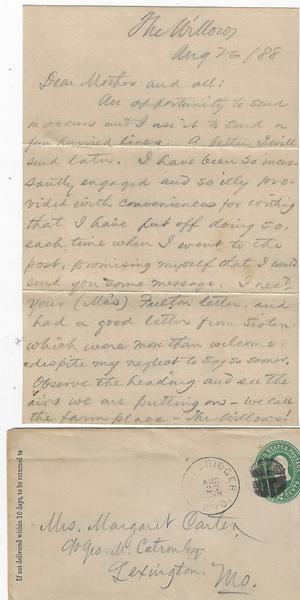 The Willows
Aug 26/88
Dear Mother and all:
An opportunity to send
in occurs and I use it to send a
few hurried lines. A letter I will
send later. I have been so inces-
santly engaged and so illy pro-
vided with conveniences for writing
that I have put off doing so,
each time when I went to the
post, promising myself that I would
send you some message. I rec'd
your (Ma's) Fulton letter, and
had a good letter from Sister
which were more than welcome
despite my neglect to say so sooner.
Observe the heading and see the
airs we are putting on - we call
the farm place - The Willows!
If not delivered within 10 days, to be returned to
BRIDGER
AUG
27
WYO.
Mrs. Margaret Carter
c/o Geo. M. Catron Esq
Lexington,
Mo.